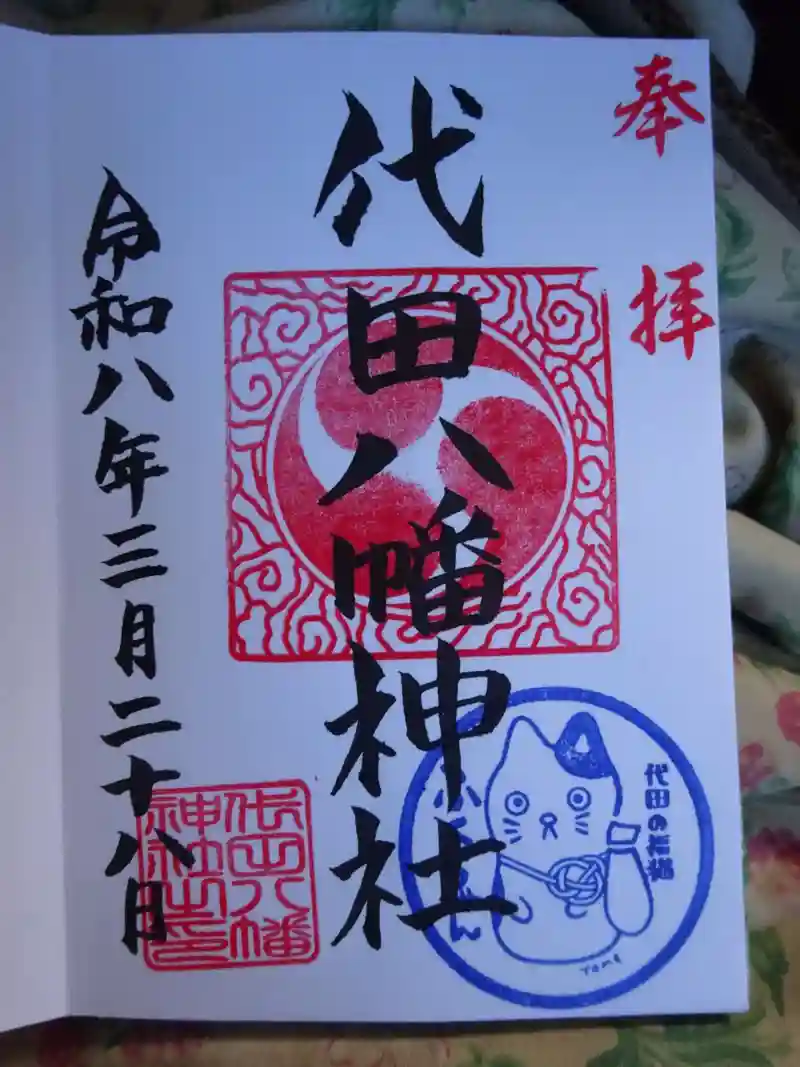 奉拝
代田八幡神社
令和八年三月二十八日
代田八幡神社之印
代田の招猫
TOME